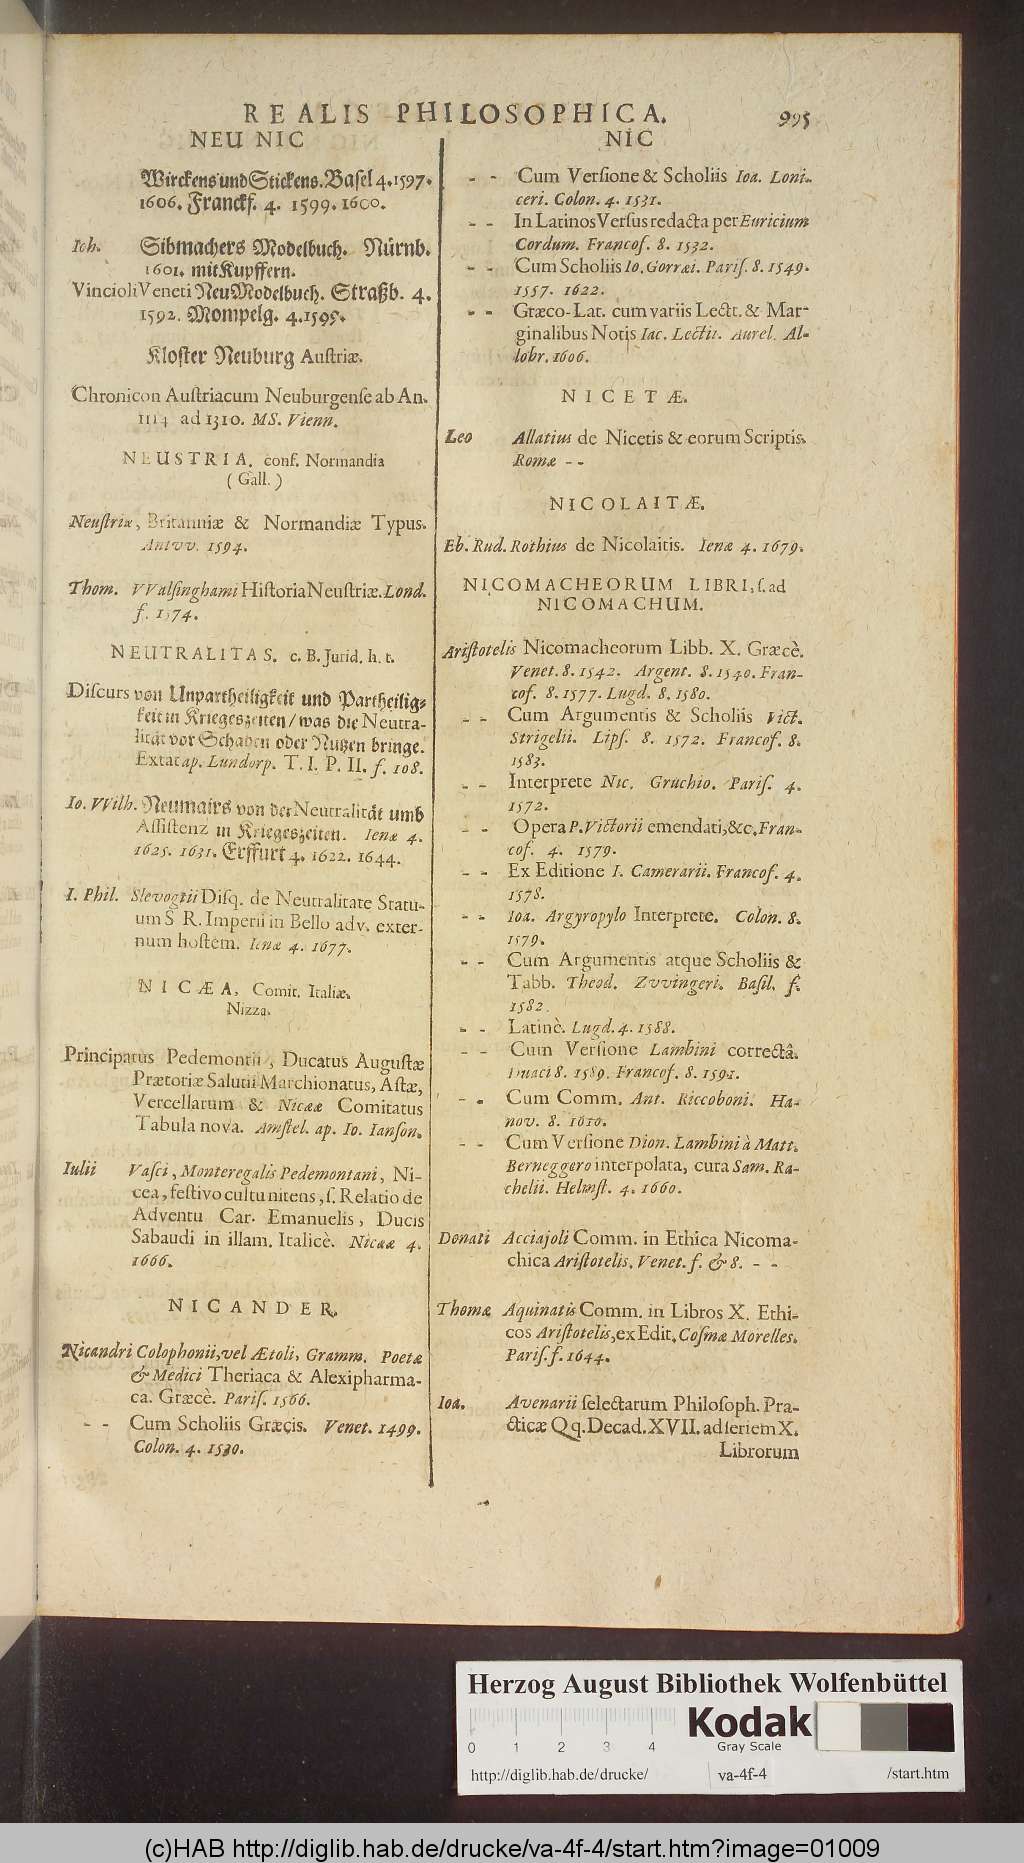 REALIS PHILOSOPHICA. 995
NEU NIC
Wirckens und Stickens. Basel 4. 1597.
1606. Franckf. 4. 1599. 1600.
Ich. Sibmachers Modelbuch. Nürnb.
1601. mit Kupffern.
Vincioli Veneti Neu Modelbuch. Straßb. 4.
1592. Mompelg. 4. 1595.
Kloster Neuburg Austriæ.
Chronicon Austriacum Neuburgense ab An.
1114 ad 1310. MS. Vienn.
NEUSTRIA. conf. Normandia
(Gall.)
Neustriæ, Britanniæ & Normandiæ Typus.
Antvv. 1594.
Thom. VValsinghami Historia Neustriæ. Lond.
f. 1574.
NEUTRALITAS. c. B. Jurid. h. t.
Discurs von Unpartheiligkeit und Partheilig-
keit in Kriegeszeiten / was die Neutra-
lität vor Schaden oder Nutzen bringe.
Extat ap. Lundorp. T. I. P. II. f. 108.
Io. VVilh. Neumairs von der Neutralität umb
Assistenz in Kriegeszeiten. Ienæ 4.
1625. 1631. Erffurt 4. 1622. 1644.
I. Phil. Slevogtii Disq. de Neutralitate Statu-
um S R. Imperii in Bello adv. exter-
num hostem. Ienæ 4. 1677.
NICÆA, Comit. Italiæ.
Nizza.
Principatus Pedemontii, Ducatus Augustæ
Prætoriæ Salutii Marchionatus, Astæ,
Vercellarum & Nicææ Comitatus
Tabula nova. Amstel. ap. Io. Ianson.
Iulii Vasci, Monteregalis Pedemontani, Ni-
cea, festivo cultu nitens, s. Relatio de
Adventu Car. Emanuelis, Ducis
Sabaudi in illam. Italicè. Nicææ 4.
1666.
NICANDER.
Nicandri Colophonii, vel Ætoli, Gramm. Poetæ
& Medici Theriaca & Alexipharma-
ca. Græcè. Paris. 1566.
- - Cum Scholiis Græcis. Venet. 1499.
Colon. 4. 1530.
NIC
- - Cum Versione & Scholiis Ioa. Loni-
ceri. Colon. 4. 1531.
- - In Latinos Versus redacta per Euricium
Cordum. Francof. 8. 1532.
- - Cum Scholiis Io. Gorræi. Paris. 8. 1549.
1557. 1622.
- - Græco-Lat. cum variis Lectt. & Mar-
ginalibus Notis Iac. Lectii. Aurel. Al-
lobr. 1606.
NICETÆ.
Leo Allatius de Nicetis & eorum Scriptis.
Romæ - -
NICOLAITÆ.
Eb. Rud. Rothius de Nicolaitis. Ienæ 4. 1679.
NICOMACHEORUM LIBRI, s. ad
NICOMACHUM.
Aristotelis Nicomacheorum Libb. X. Græcè.
Venet. 8. 1542. Argent. 8. 1540. Fran-
cof. 8. 1577. Lugd. 8. 1580.
- - Cum Argumentis & Scholiis Vict.
Strigelii. Lips. 8. 1572. Francof. 8.
1583.
- - Interprete Nic. Gruchio. Paris. 4.
1572.
- - Opera P. Victorii emendati, &c. Fran-
cof. 4. 1579.
- - Ex Editione I. Camerarii. Francof. 4.
1578.
- - Ioa. Argyropylo Interprete. Colon. 8.
1579.
- - Cum Argumentis atque Scholiis &
Tabb. Theod. Zvvingeri. Basil. f.
1582.
- - Latinè. Lugd. 4. 1588.
- - Cum Versione Lambini correctâ.
Duaci 8. 1589. Francof. 8. 1591.
- - Cum Comm. Ant. Riccoboni. Ha-
nov. 8. 1610.
- - Cum Versione Dion. Lambini à Matt.
Berneggero interpolata, cura Sam. Ra-
chelii. Helmst. 4. 1660.
Donati Acciajoli Comm. in Ethica Nicoma-
chica Aristotelis. Venet. f. & 8. - -
Thomæ Aquinatis Comm. in Libros X. Ethi-
cos Aristotelis, ex Edit. Cosmæ Morelles.
Paris. f. 1644.
Ioa. Avenarii selectarum Philosoph. Pra-
cticæ Qq. Decad. XVII. ad seriem X.
Librorum
Herzog August Bibliothek Wolfenbüttel
0 1 2 3 4
Kodak
Gray Scale
http://diglib.hab.de/drucke/ va-4f-4 /start.htm
(c)HAB http://diglib.hab.de/drucke/va-4f-4/start.htm?image=01009